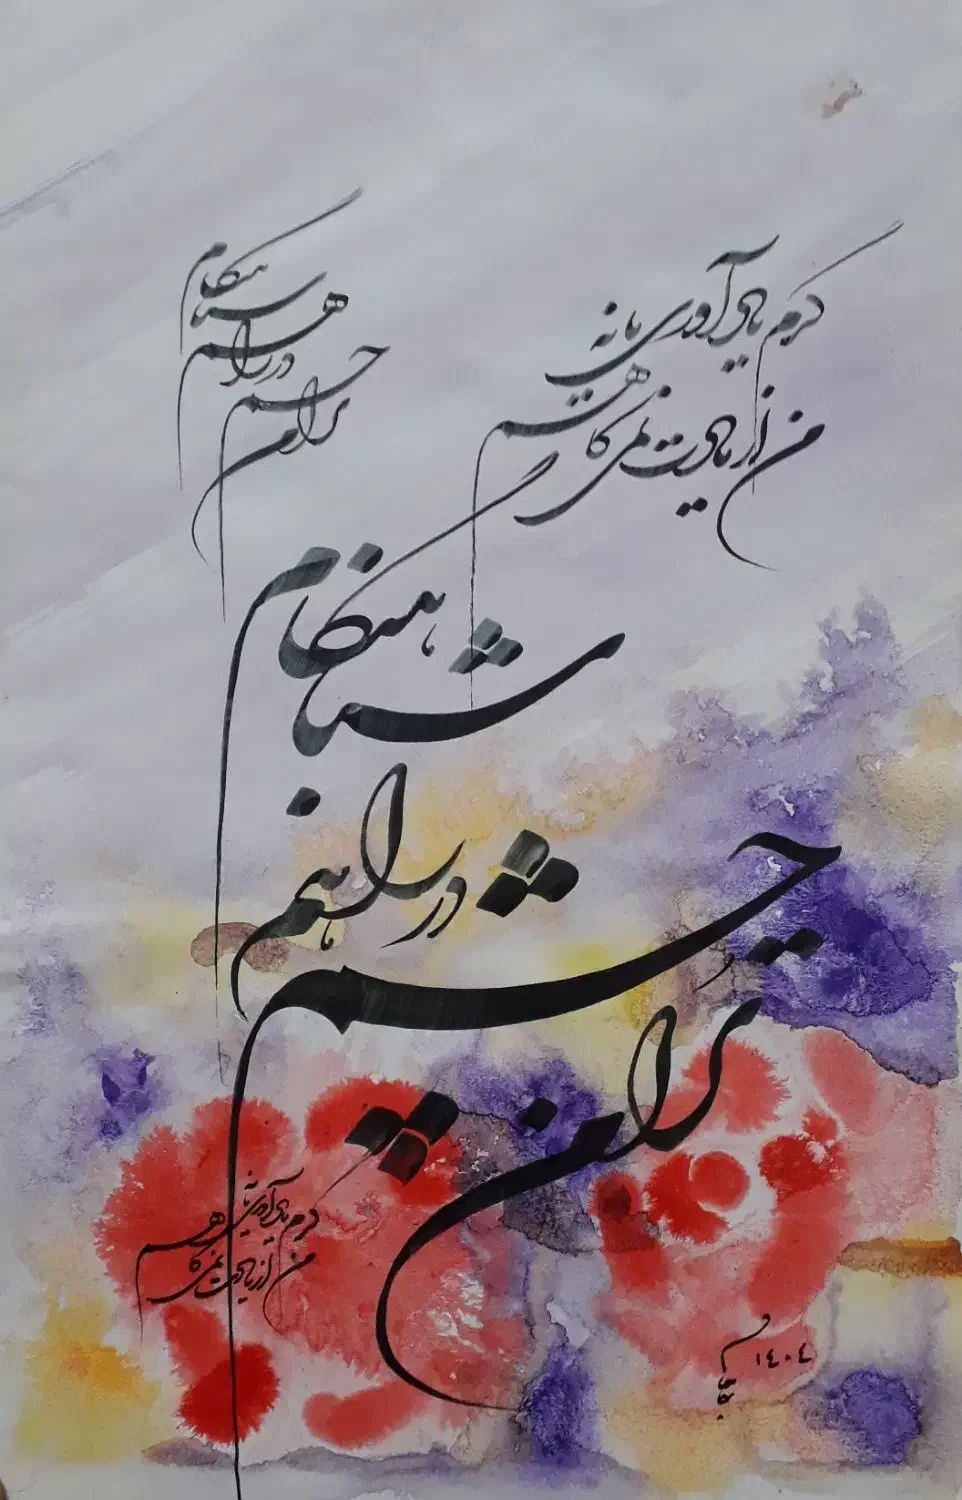 گرم یادآوری یا نه
من از یادت نمی کاهم
ترا من چشم در راهم
شباهنگام
ترا من چشم در راهم
شباهنگام
گرم یادآوری یا نه
من از یادت نمی کاهم
۱۴۰۴